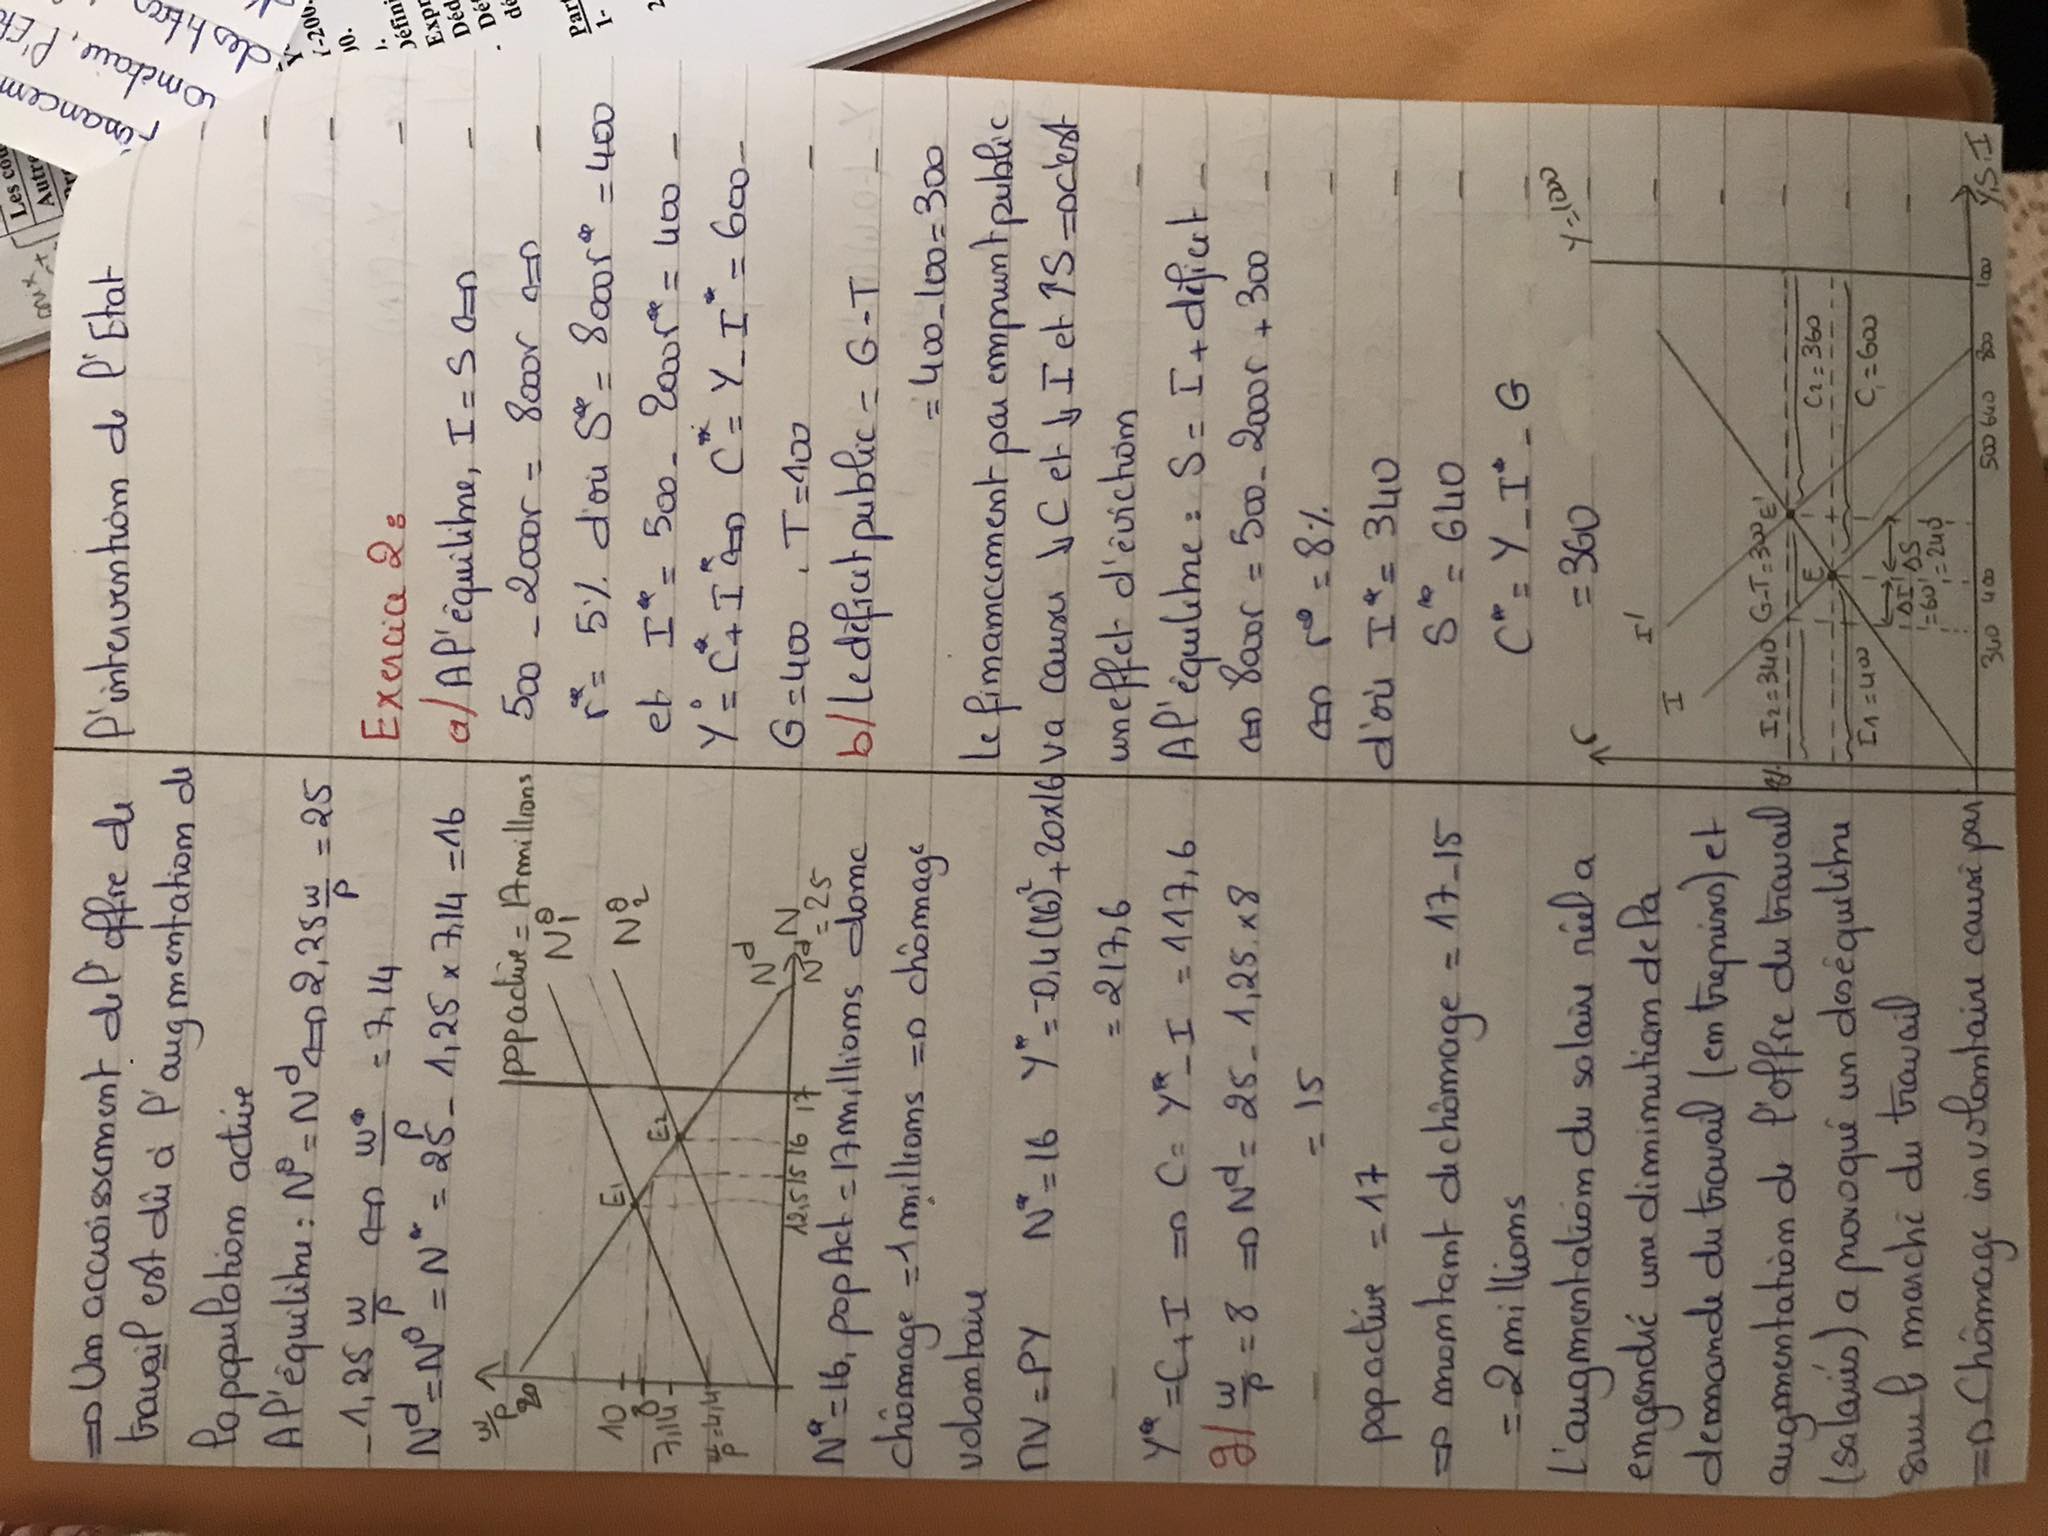 => Un accroissement de l'offre de
travail est dû à l'augmentation de
la population active
A l'équilibre : N⁰ = Nᵈ <=> 2,25 w/p = 25
- 1,25 w/p <=> w*/p = 7,14
Nᵈ = N⁰ = N* = 25 - 1,25 x 7,14 = 16
w/p
20
pop active = 17 millions
N₁⁰
10
E1
N₂⁰
8
E2
7,14
w/p = 4,4
Nᵈ
N
12,5 15 16 17
Nᵈ = 25
N* = 16, pop Act = 17 millions donc
chômage = 1 millions => chômage
volontaire
MV = PY N* = 16 Y* = -0,4(16)² + 20x16
= 217,6
Y* = C + I => C = Y* - I = 117,6
g/ w/p = 8 => Nᵈ = 25 - 1,25 x 8
= 15
pop active = 17
=> montant de chômage = 17 - 15
= 2 millions
L'augmentation du salaire réel a
engendré une diminution de la
demande du travail (entreprises) et
augmentation de l'offre du travail
(salariés) a provoqué un deséquilibre
sur le marché du travail
=> Chômage involontaire causé par
l'intervention de l'Etat
Exercice 2 :
a/ A l'équilibre, I = S <=>
500 - 2000r = 8000r <=>
r* = 5% d'où S* = 8000r* = 400
et I* = 500 - 2000r* = 400
Y° = C* + I* <=> C* = Y - I* = 600
G = 400 , T = 100
b/ Le déficit public = G - T
= 400 - 100 = 300
Le financement par emprunt public
va causer ↓ C et ↓ I et ↑ S => c'est
un effet d'éviction
A l'équilibre : S = I + déficit
<=> 8000r = 500 - 2000r + 300
<=> r° = 8%
d'où I* = 340
S* = 640
C* = Y - I* - G
= 360
r
Y = 1000
I'
I
I2 = 340 G-T = 300 E'
C2 = 360
E
I1 = 400
C1 = 600
ΔI = 60 ΔS = 240
340 400 500 640 800 1000 Y,S,I
Les cou
Autre
financem
monétaire, l'Et
Y-200.
00.
Défini
Expr
Déd
Dé
dé
Part
1-
2